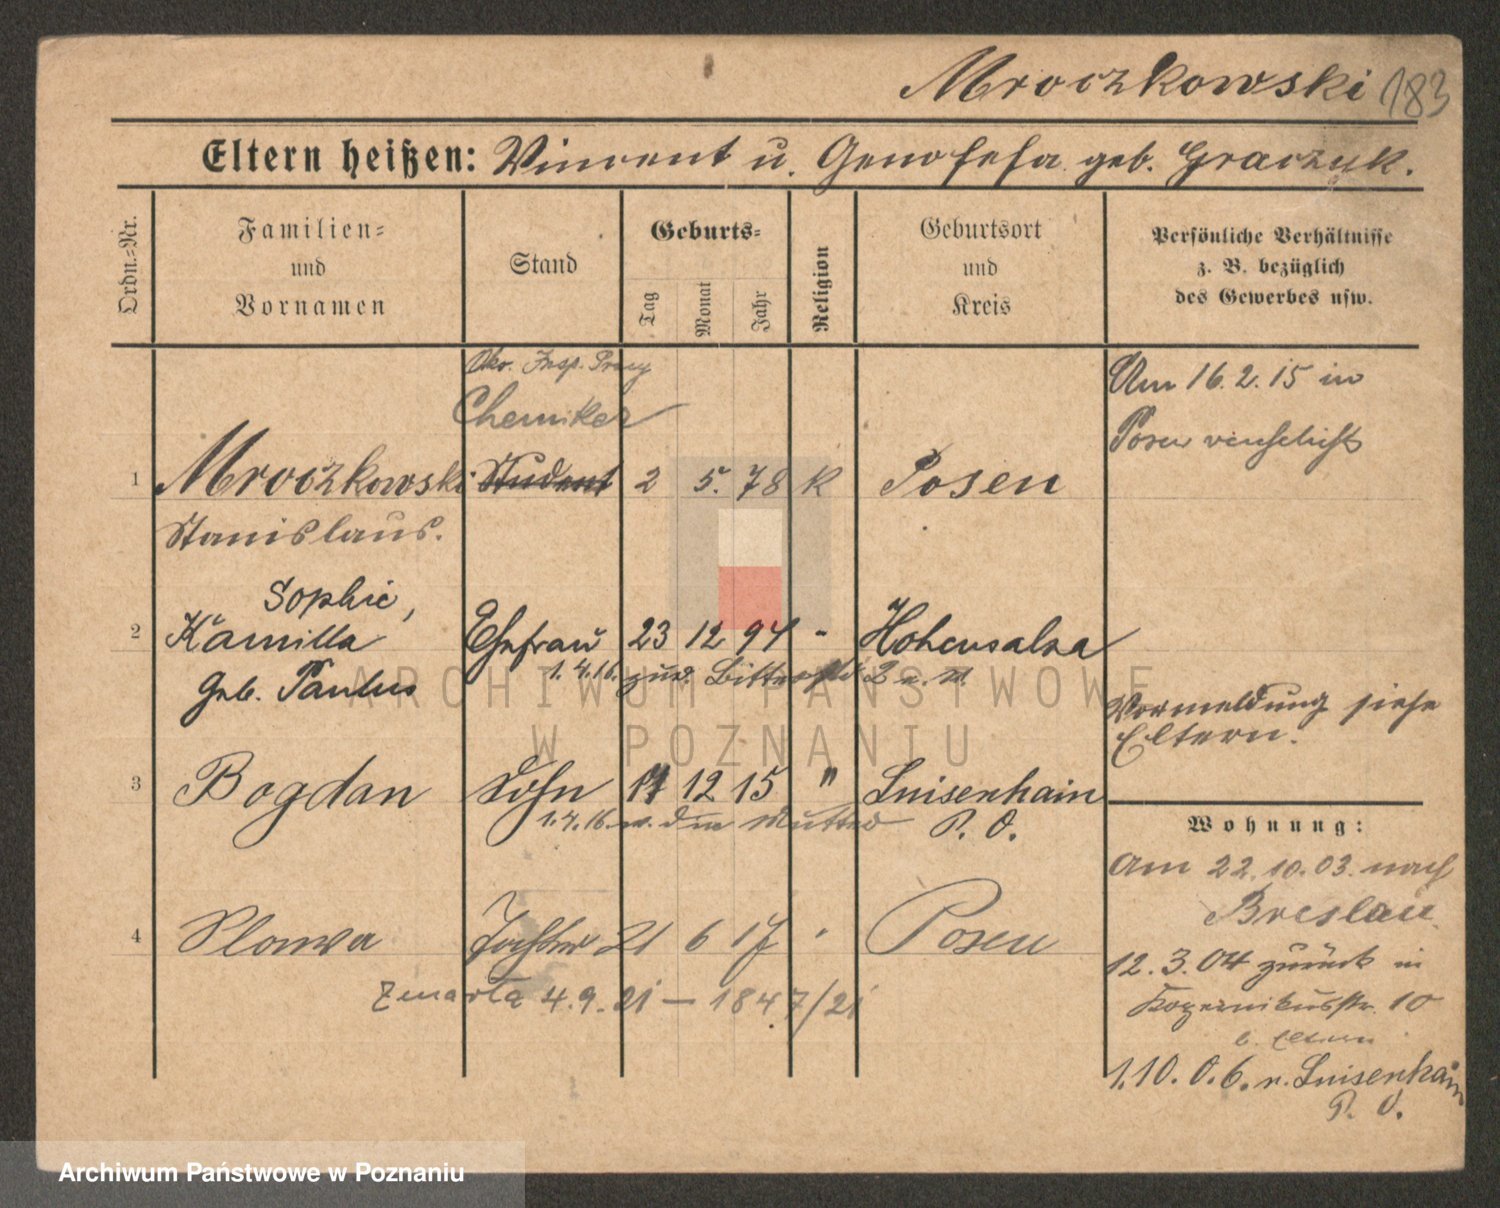 Mroczkowski 183
Eltern heißen: Vincent u. Genofefa geb. Graczyk.
Ordn.-Nr.
Familien-
und
Vornamen
Stand
Geburts-
Tag
Monat
Jahr
Religion
Geburtsort
und
Kreis
Persönliche Verhältnisse
z. B. bezüglich
des Gewerbes usw.
Insp.
Chemiker
1 Mroczkowski Student 2 5. 78 K Posen
Stanislaus.
Am 16. 2. 15 in
Posen verehelicht
Sophie,
2 Kamilla Ehefrau 23 12 94 " Hohensalza
1.4.16. zur
geb. Paulus
Vormeldung siehe
Eltern.
3 Bogdan Sohn 12 15 " Luisenhain
1.4.16. Mutter P. O.
4 Slawa Tochter 21 6 17 " Posen
Zmarła 4.9.21 — 1847/21
Wohnung:
Am 22.10.03. nach
Breslau
12.3.04 zurück in
Kopernikusstr. 10
b. Eltern
1.10.06. n. Luisenhain
P. O.
ARCHIWUM PAŃSTWOWE
W POZNANIU
Archiwum Państwowe w Poznaniu